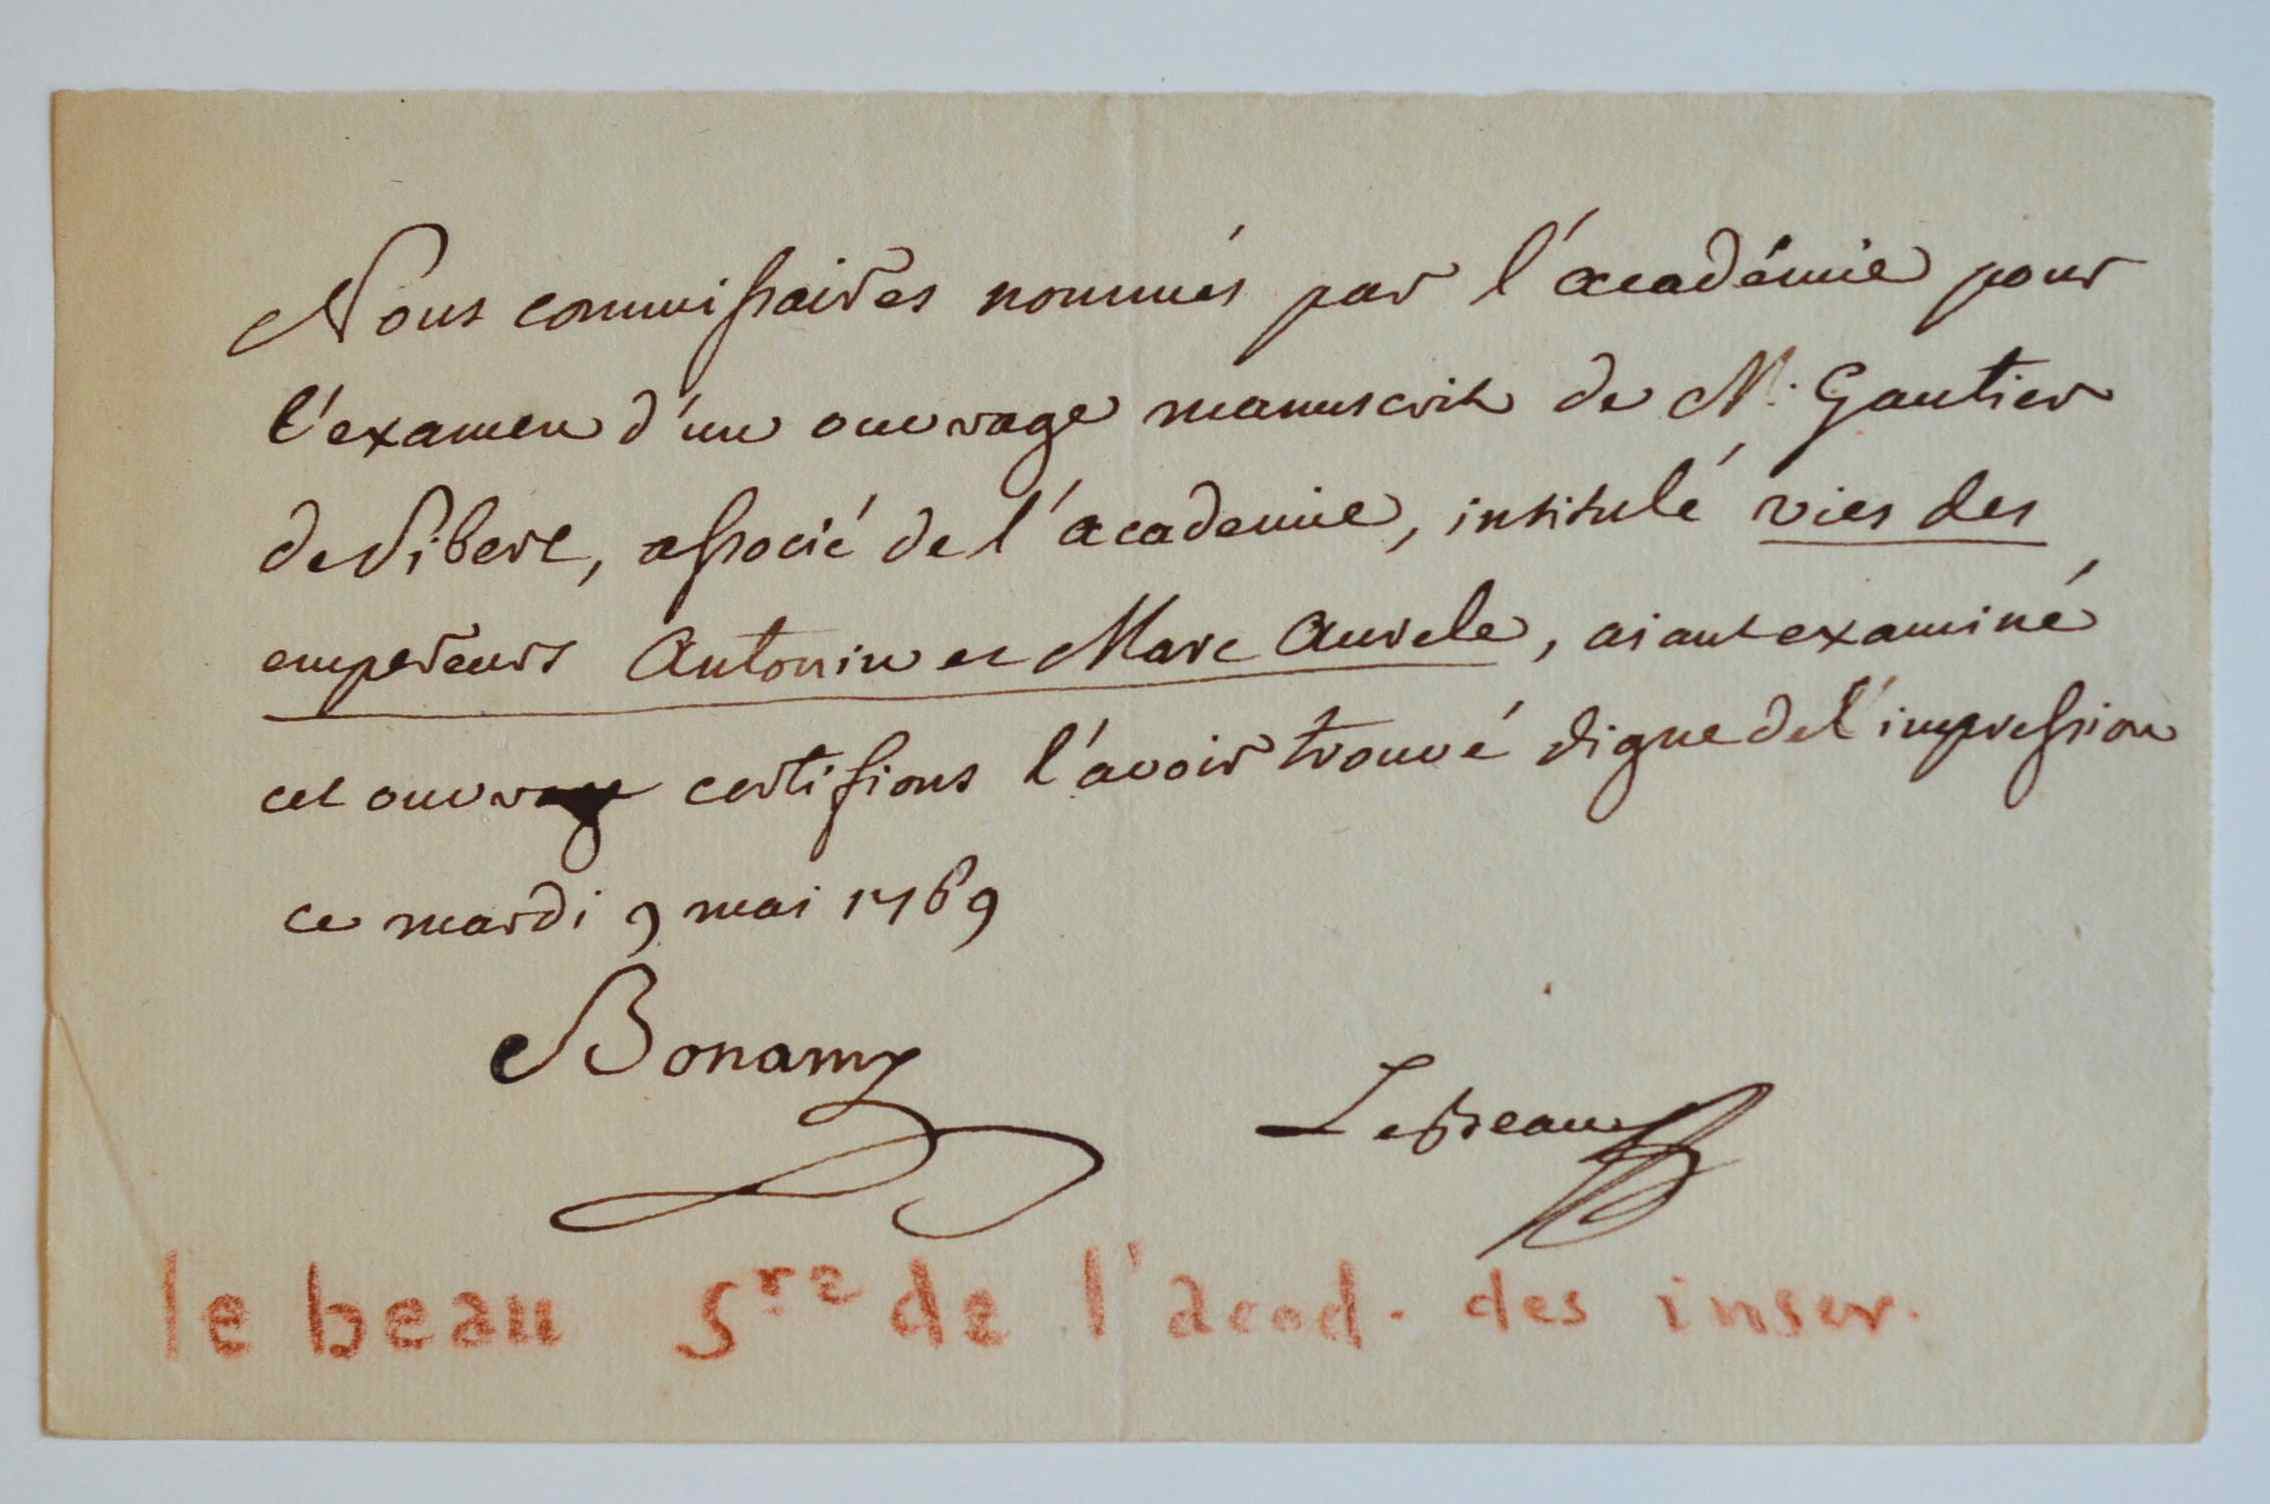 Nous commissaires nommés par l'académie pour
l'examen d'un ouvrage manuscrit de Mr. Gautier
de Sibert, associé de l'academie, intitulé vies des
empereurs Antonin et Marc Aurele, aiant examiné
cet ouvrage certifions l'avoir trouvé digne de l'impression
ce mardi 9 mai 1769
Bonamy
LeBeau
le beau Sre de l'acad. des inscr.